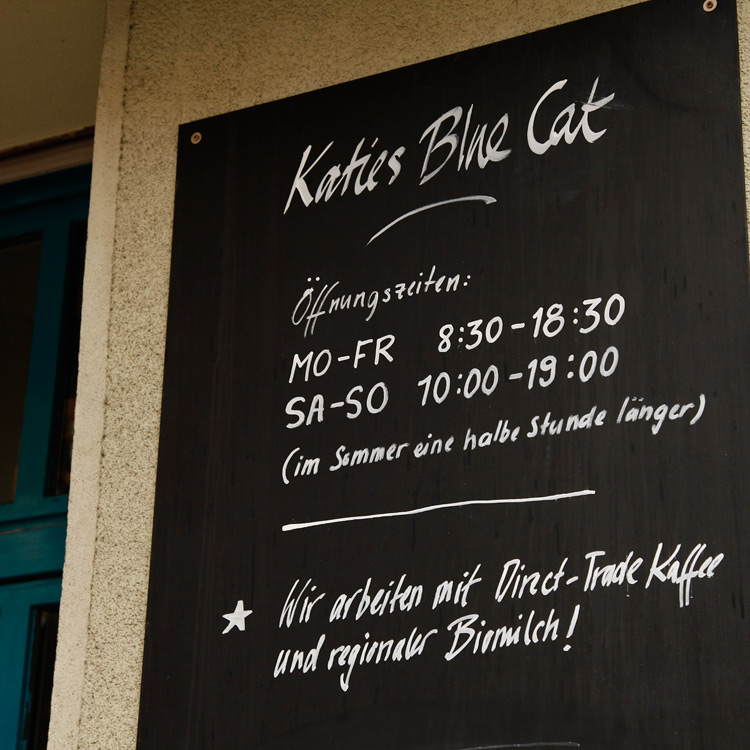 Katies Blue Cat
Öffnungszeiten:
MO-FR 8:30-18:30
SA-SO 10:00-19:00
(im Sommer eine halbe Stunde länger)
Wir arbeiten mit Direct-Trade Kaffee
und regionaler Biomilch!